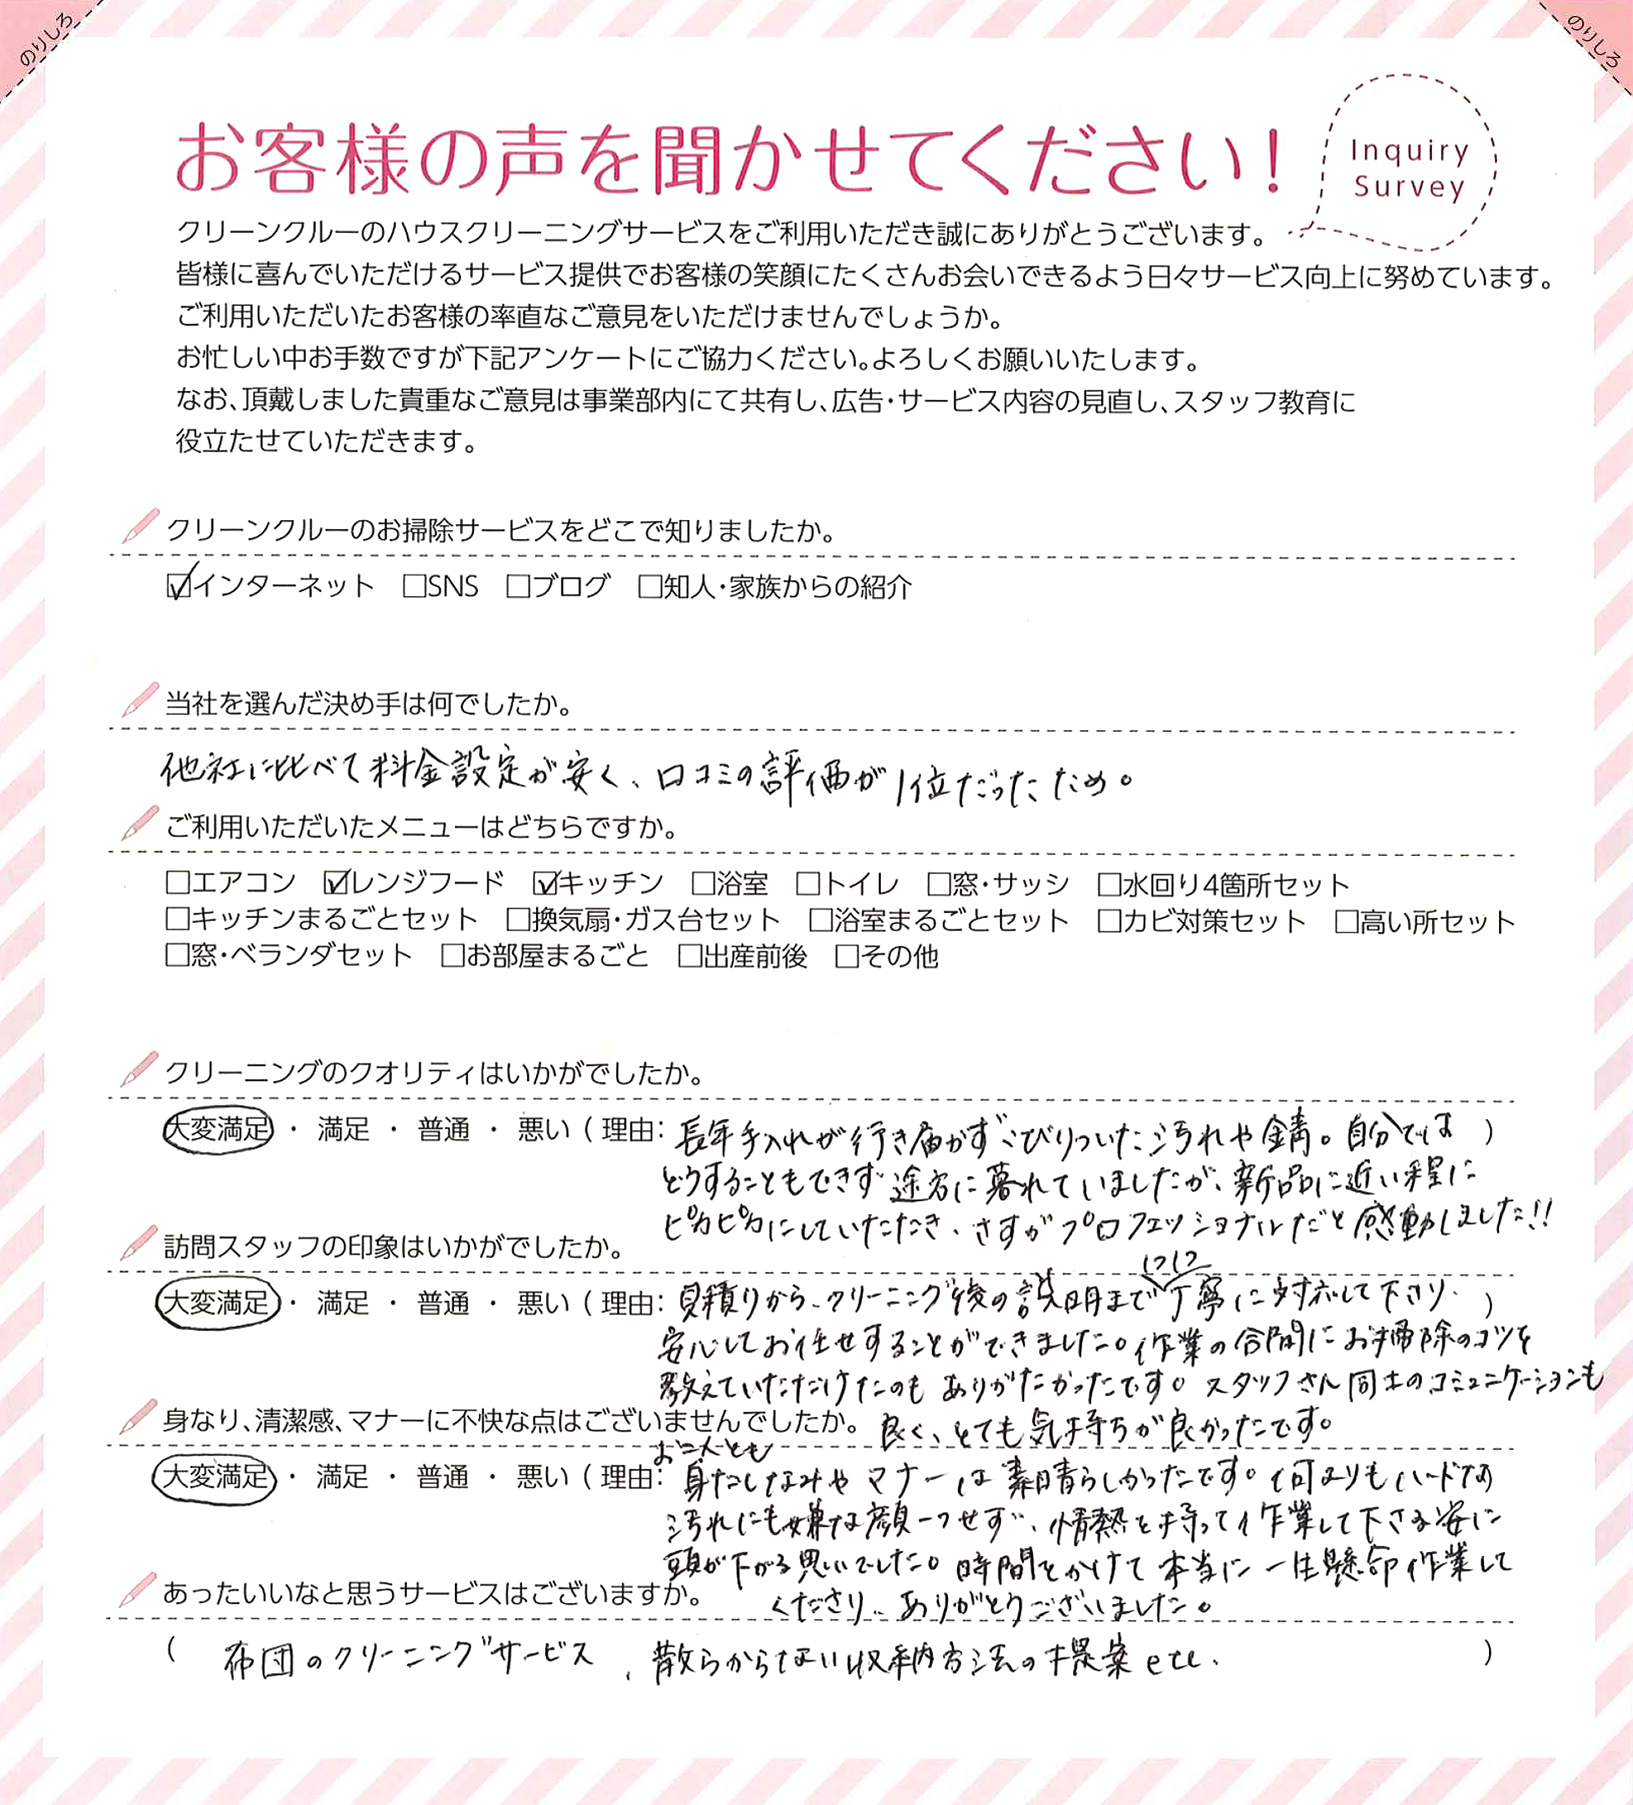 のりしろ
のりしろ
お客様の声を聞かせてください!
Inquiry
Survey
クリーンクルーのハウスクリーニングサービスをご利用いただき誠にありがとうございます。
皆様に喜んでいただけるサービス提供でお客様の笑顔にたくさんお会いできるよう日々サービス向上に努めています。
ご利用いただいたお客様の率直なご意見をいただけませんでしょうか。
お忙しい中お手数ですが下記アンケートにご協力ください。よろしくお願いいたします。
なお、頂戴しました貴重なご意見は事業部内にて共有し、広告・サービス内容の見直し、スタッフ教育に
役立たせていただきます。
クリーンクルーのお掃除サービスをどこで知りましたか。
☑インターネット □SNS □ブログ □知人・家族からの紹介
当社を選んだ決め手は何でしたか。
他社に比べて料金設定が安く、口コミの評価が1位だったため。
ご利用いただいたメニューはどちらですか。
□エアコン ☑レンジフード ☑キッチン □浴室 □トイレ □窓・サッシ □水回り4箇所セット
□キッチンまるごとセット □換気扇・ガス台セット □浴室まるごとセット □カビ対策セット □高い所セット
□窓・ベランダセット □お部屋まるごと □出産前後 □その他
クリーニングのクオリティはいかがでしたか。
大変満足 ・ 満足 ・ 普通 ・ 悪い ( 理由: 長年手入れが行き届かずこびりついた汚れや錆。自分では )
どうすることもできず途方に暮れていましたが、新品に近い程に
ピカピカにしていただき、さすがプロフェッショナルだと感動しました!!
訪問スタッフの印象はいかがでしたか。
大変満足 ・ 満足 ・ 普通 ・ 悪い ( 理由: 見積りから、クリーニング後の説明まで丁寧に対応して下さり、 )
安心してお任せすることができました。作業の合間にお掃除のコツを
教えていただけたのもありがたかったです。スタッフさん同士のコミュニケーションも
良く、とても気持ちが良かったです。
身なり、清潔感、マナーに不快な点はございませんでしたか。
お二人とも
大変満足 ・ 満足 ・ 普通 ・ 悪い ( 理由: 身だしなみやマナーは素晴らしかったです。何よりもハードな
汚れにも嫌な顔一つせず、情熱を持って作業して下さる姿に
頭が下がる思いでした。時間をかけて本当に一生懸命作業して
くださり、ありがとうございました。
あったいいなと思うサービスはございますか。
( 布団のクリーニングサービス、散らからない収納方法の提案etc. )